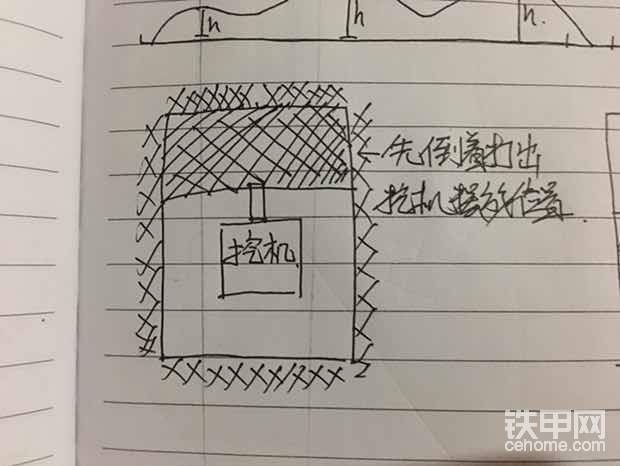 h
h
h.
←先倒着打出
挖机摆放位置.
挖机
铁甲网
cehome.com